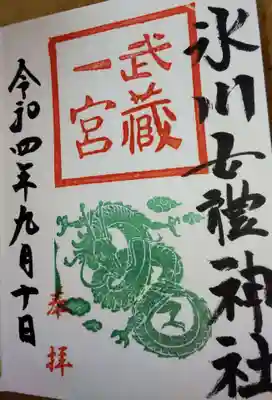 氷川女體神社
武蔵
一宮
奉拝
令和四年九月十日